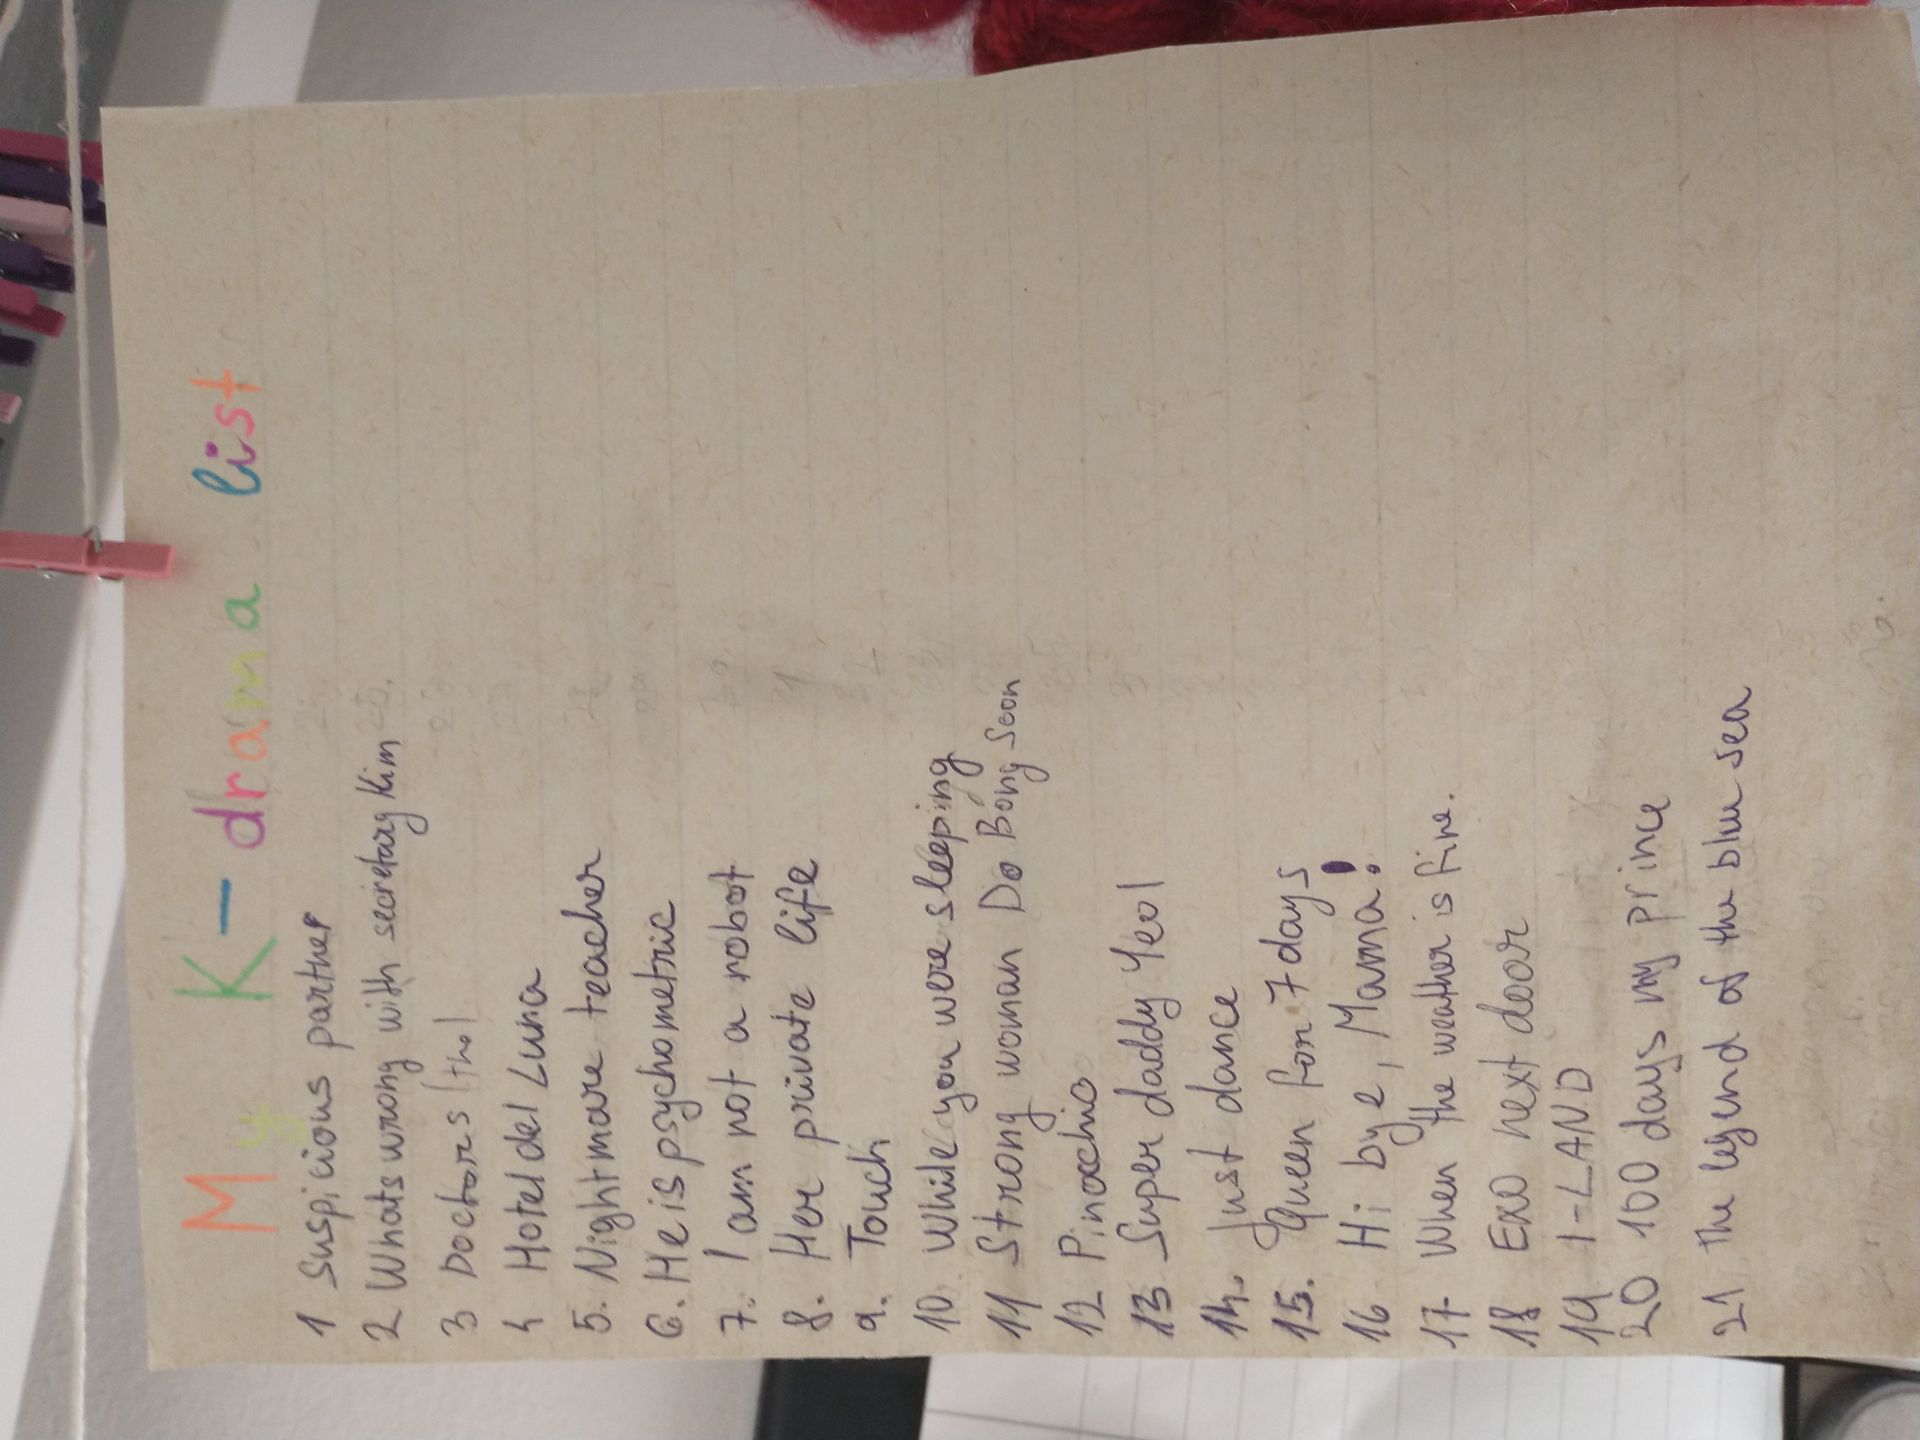 My K-drama list
1 Suspicious partner
2 Whats wrong with secretary Kim
3 Doctors
4 Hotel del Luna
5. Nightmare teacher
6. He is psychometric
7. I am not a robot
8. Her private life
9. Touch
10. While you were sleeping
11 Strong woman Do Bong Soon
12 Pinocchio
13 Super daddy Yeol
14. Just dance
15. Queen for 7 days
16 Hi bye, Mama!
17 When the weather is fine.
18 Exo next door
19 I-LAND
20 100 days my prince
21 The legend of the blue sea